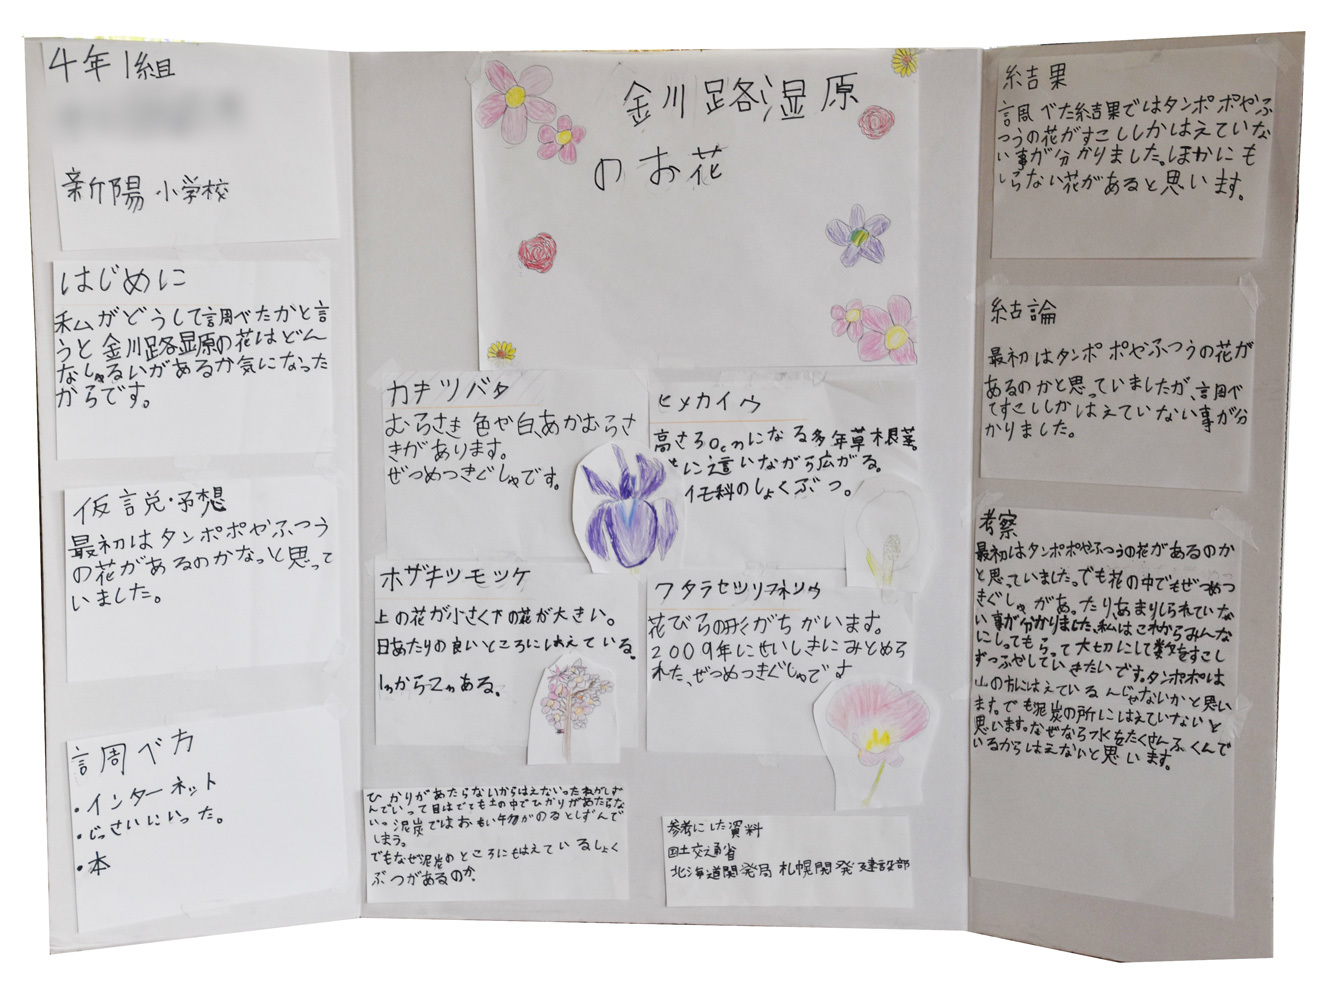 4年1組
新陽小学校
はじめに
私がどうして調べたかと言
うと釧路湿原の花はどん
なしゅるいがあるか気になった
からです。
仮説・予想
最初はタンポポやふつう
の花があるのかなっと思って
いました。
調べ方
・インターネット
・じっさいにいった。
・本
釧路湿原
のお花
カキツバタ
むらさき色や白、あかむらさ
きがあります。
ぜつめつきぐしゅです。
ヒメカイウ
高さ30cmになる多年草根茎。
に這いながら広がる。
イモ科のしょくぶつ。
ホザキシモツケ
上の花が小さく下の花が大きい。
日あたりの良いところにはえている。
1mから2mある。
ワタラセツリフネソウ
花びらの形がちがいます。
2009年にせいしきにみとめら
れた、ぜつめつきぐしゅです
ひかりがあたらないからはえないったねがしず
んでいって目はでても土の中でひかりがあたらな
いっ泥炭ではおもい生物がのるとしずんで
しまう。
でもなぜ泥炭のところにもはえているしょく
ぶつがあるのか。
参考にした資料
国土交通省
北海道開発局 札幌開発建設部
結果
調べた結果ではタンポポやふ
つうの花がすこししかはえていな
い事が分かりました。ほかにも
しらない花があると思います。
結論
最初はタンポポやふつうの花が
あるのかと思っていましたが、調べ
てすこししかはえていない事が分
かりました。
考察
最初はタンポポやふつうの花があるのか
と思っていました。でも花の中でもぜつめつ
きぐしゅがあったり、あまりしられていな
い事が分かりました、私はこれからみんな
にしってもらって大切にして数をすこし
ずつふやしていきたいです。タンポポは
山の方にはえているんじゃないかと思い
ます。でも泥炭の所にはえていないと
思います。なぜなら水をたくさんふくんで
いるからはえないと思います。